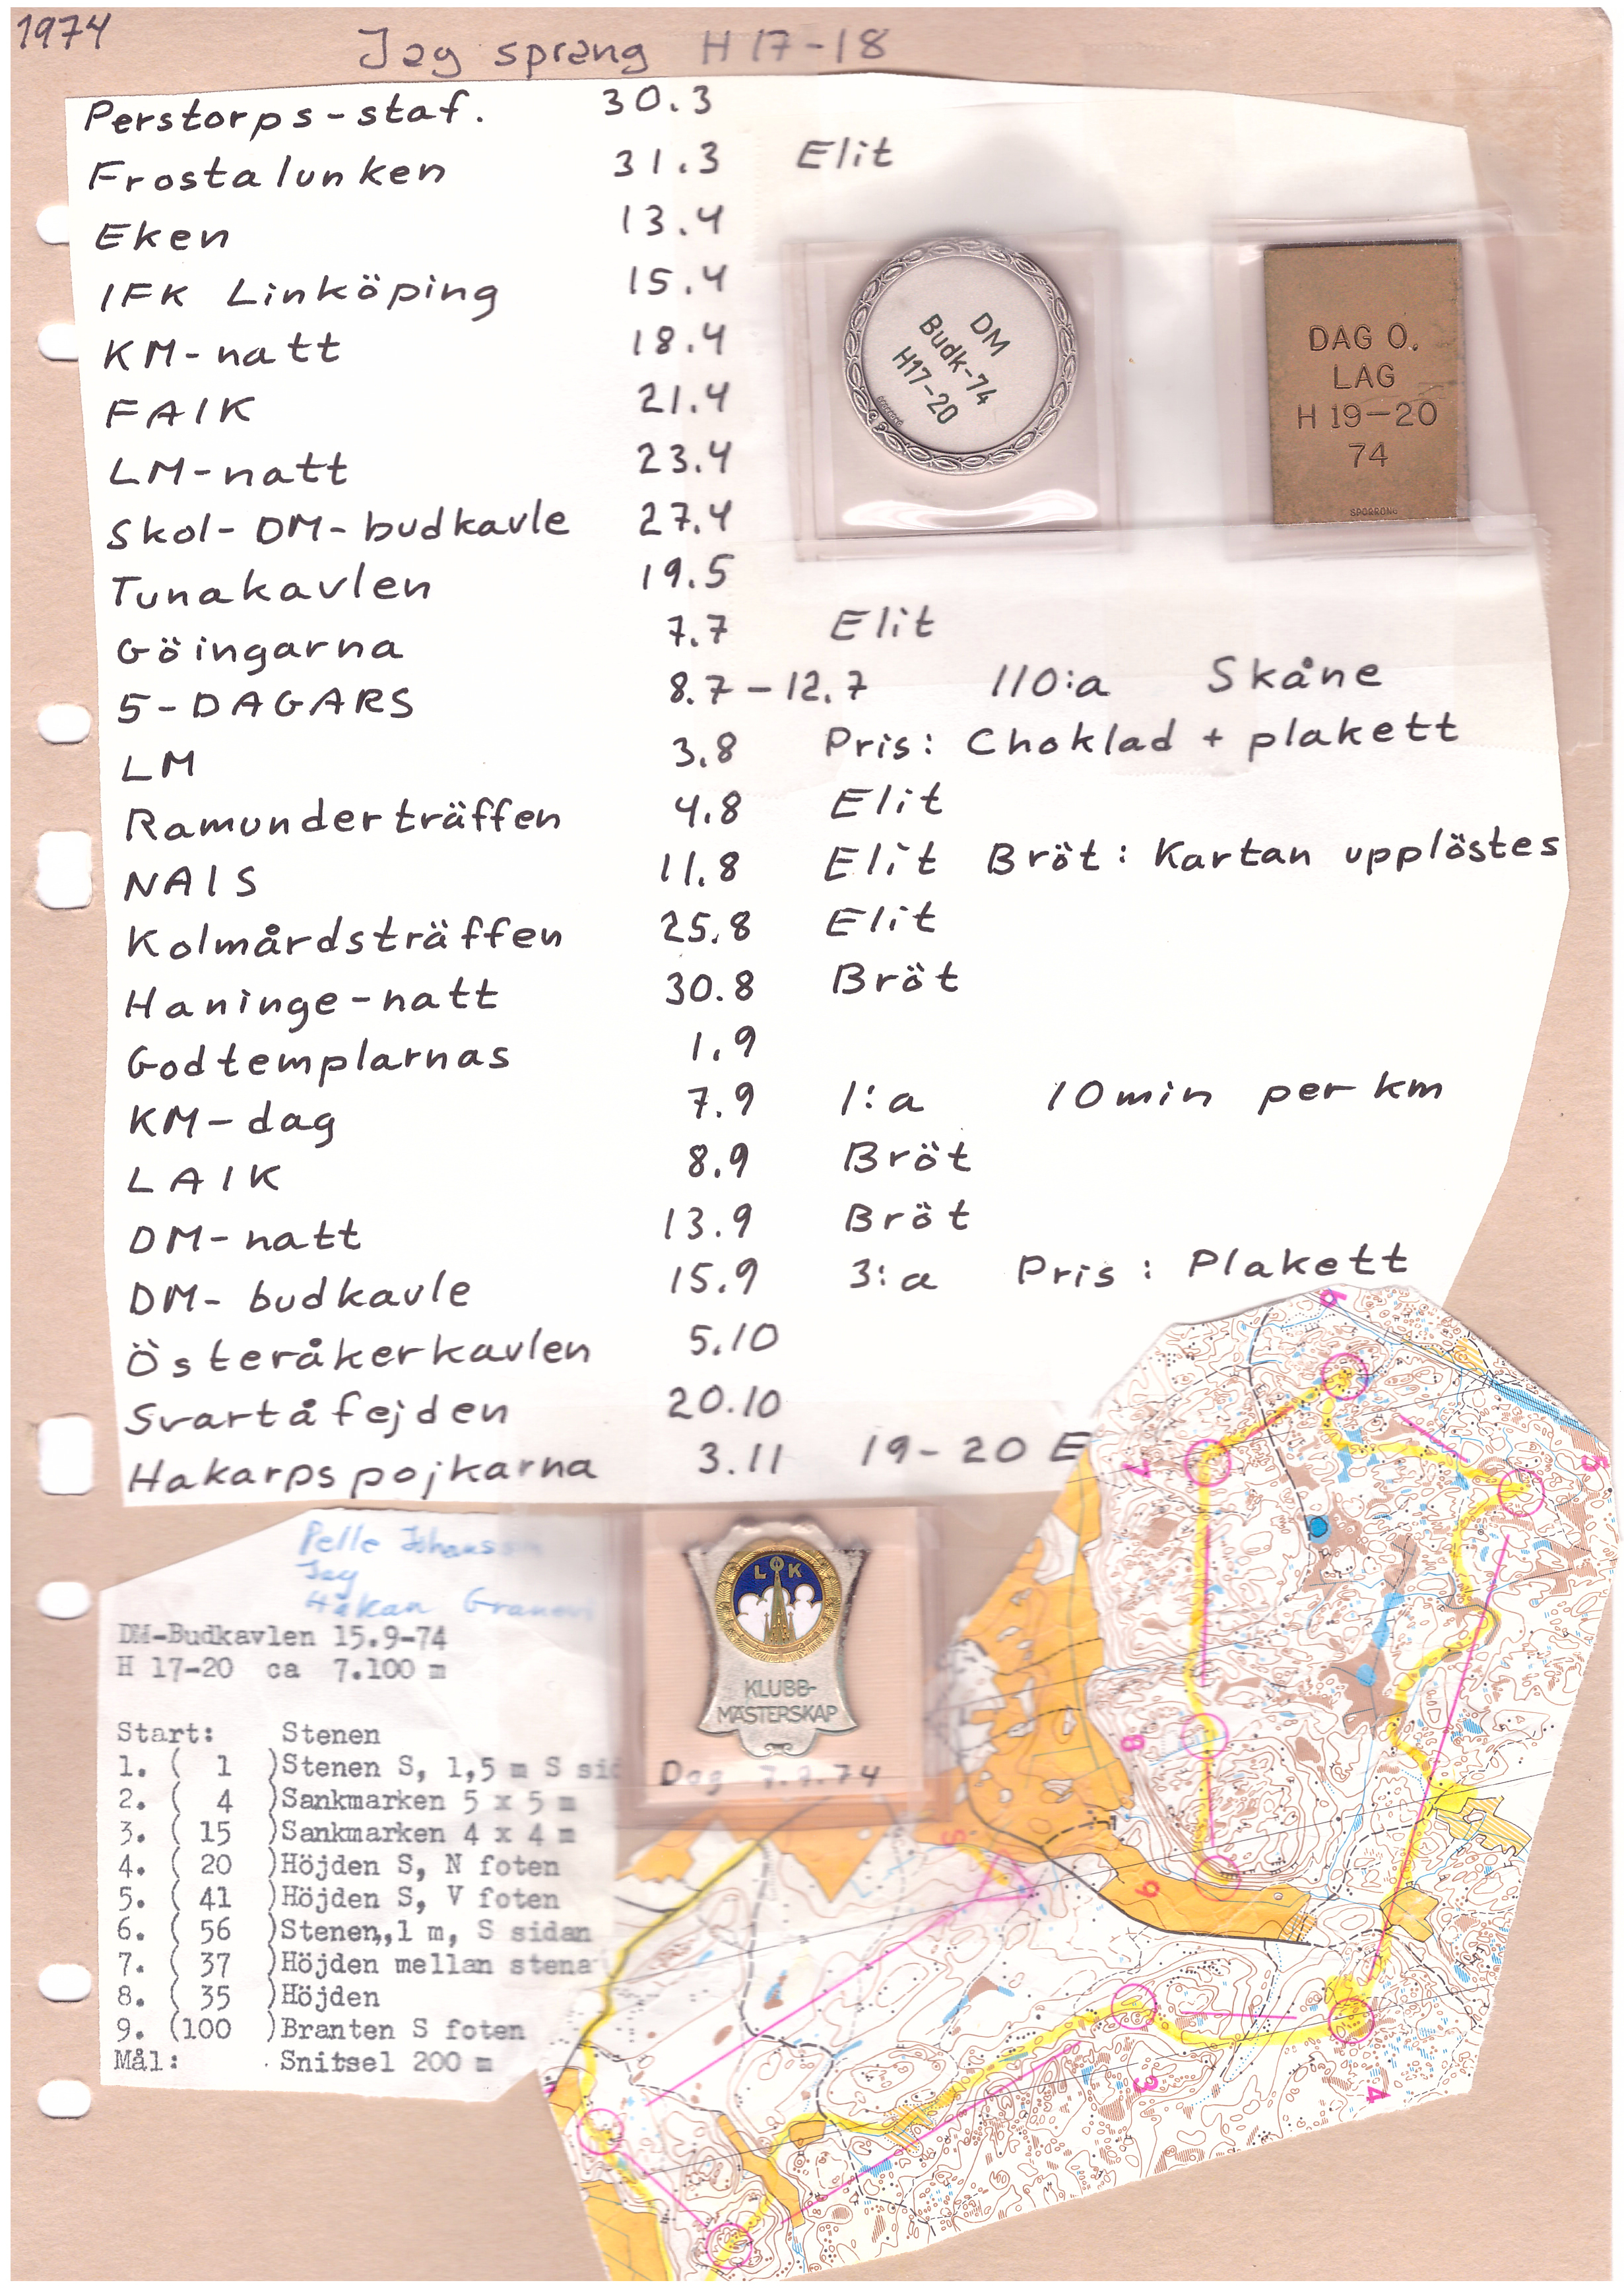 1974
Jag sprang H 17-18
Perstorps-staf. 30.3
Frostalunken 31.3 Elit
Eken 13.4
IFK Linköping 15.4
KM-natt 18.4
FAIK 21.4
LM-natt 23.4
Skol-DM-budkavle 27.4
Tunakavlen 19.5
Göingarna 7.7 Elit
5-DAGARS 8.7-12.7 110:a Skåne
LM 3.8 Pris: Choklad + plakett
Ramunderträffen 4.8 Elit
NAIS 11.8 Elit Bröt: Kartan upplöstes
Kolmårdsträffen 25.8 Elit
Haninge-natt 30.8 Bröt
Godtemplarnas 1.9
KM-dag 7.9 1:a 10min per km
LAIK 8.9 Bröt
DM-natt 13.9 Bröt
DM-budkavle 15.9 3:a Pris: Plakett
Österåkerkavlen 5.10
Svartåfejden 20.10
Hakarpspojkarna 3.11 19-20 E
DM
Budk-74
H17-20
DAG O.
LAG
H 19-20
74
SPORRONG
Pelle Johansson
Jag
Håkan
DM-Budkavlen 15.9-74
H 17-20 ca 7.100 m
Start: Stenen
1. ( 1 )Stenen S, 1,5 m S sid
2. ( 4 )Sankmarken 5 x 5 m
3. ( 15 )Sankmarken 4 x 4 m
4. ( 20 )Höjden S, N foten
5. ( 41 )Höjden S, V foten
6. ( 56 )Stenen,,1 m, S sidan
7. ( 37 )Höjden mellan stena
8. ( 35 )Höjden
9. (100 )Branten S foten
Mål: Snitsel 200 m
LOK
KLUBB-
MÄSTERSKAP
Dag 7.9.74
6
5
7
8
9
S
3
4